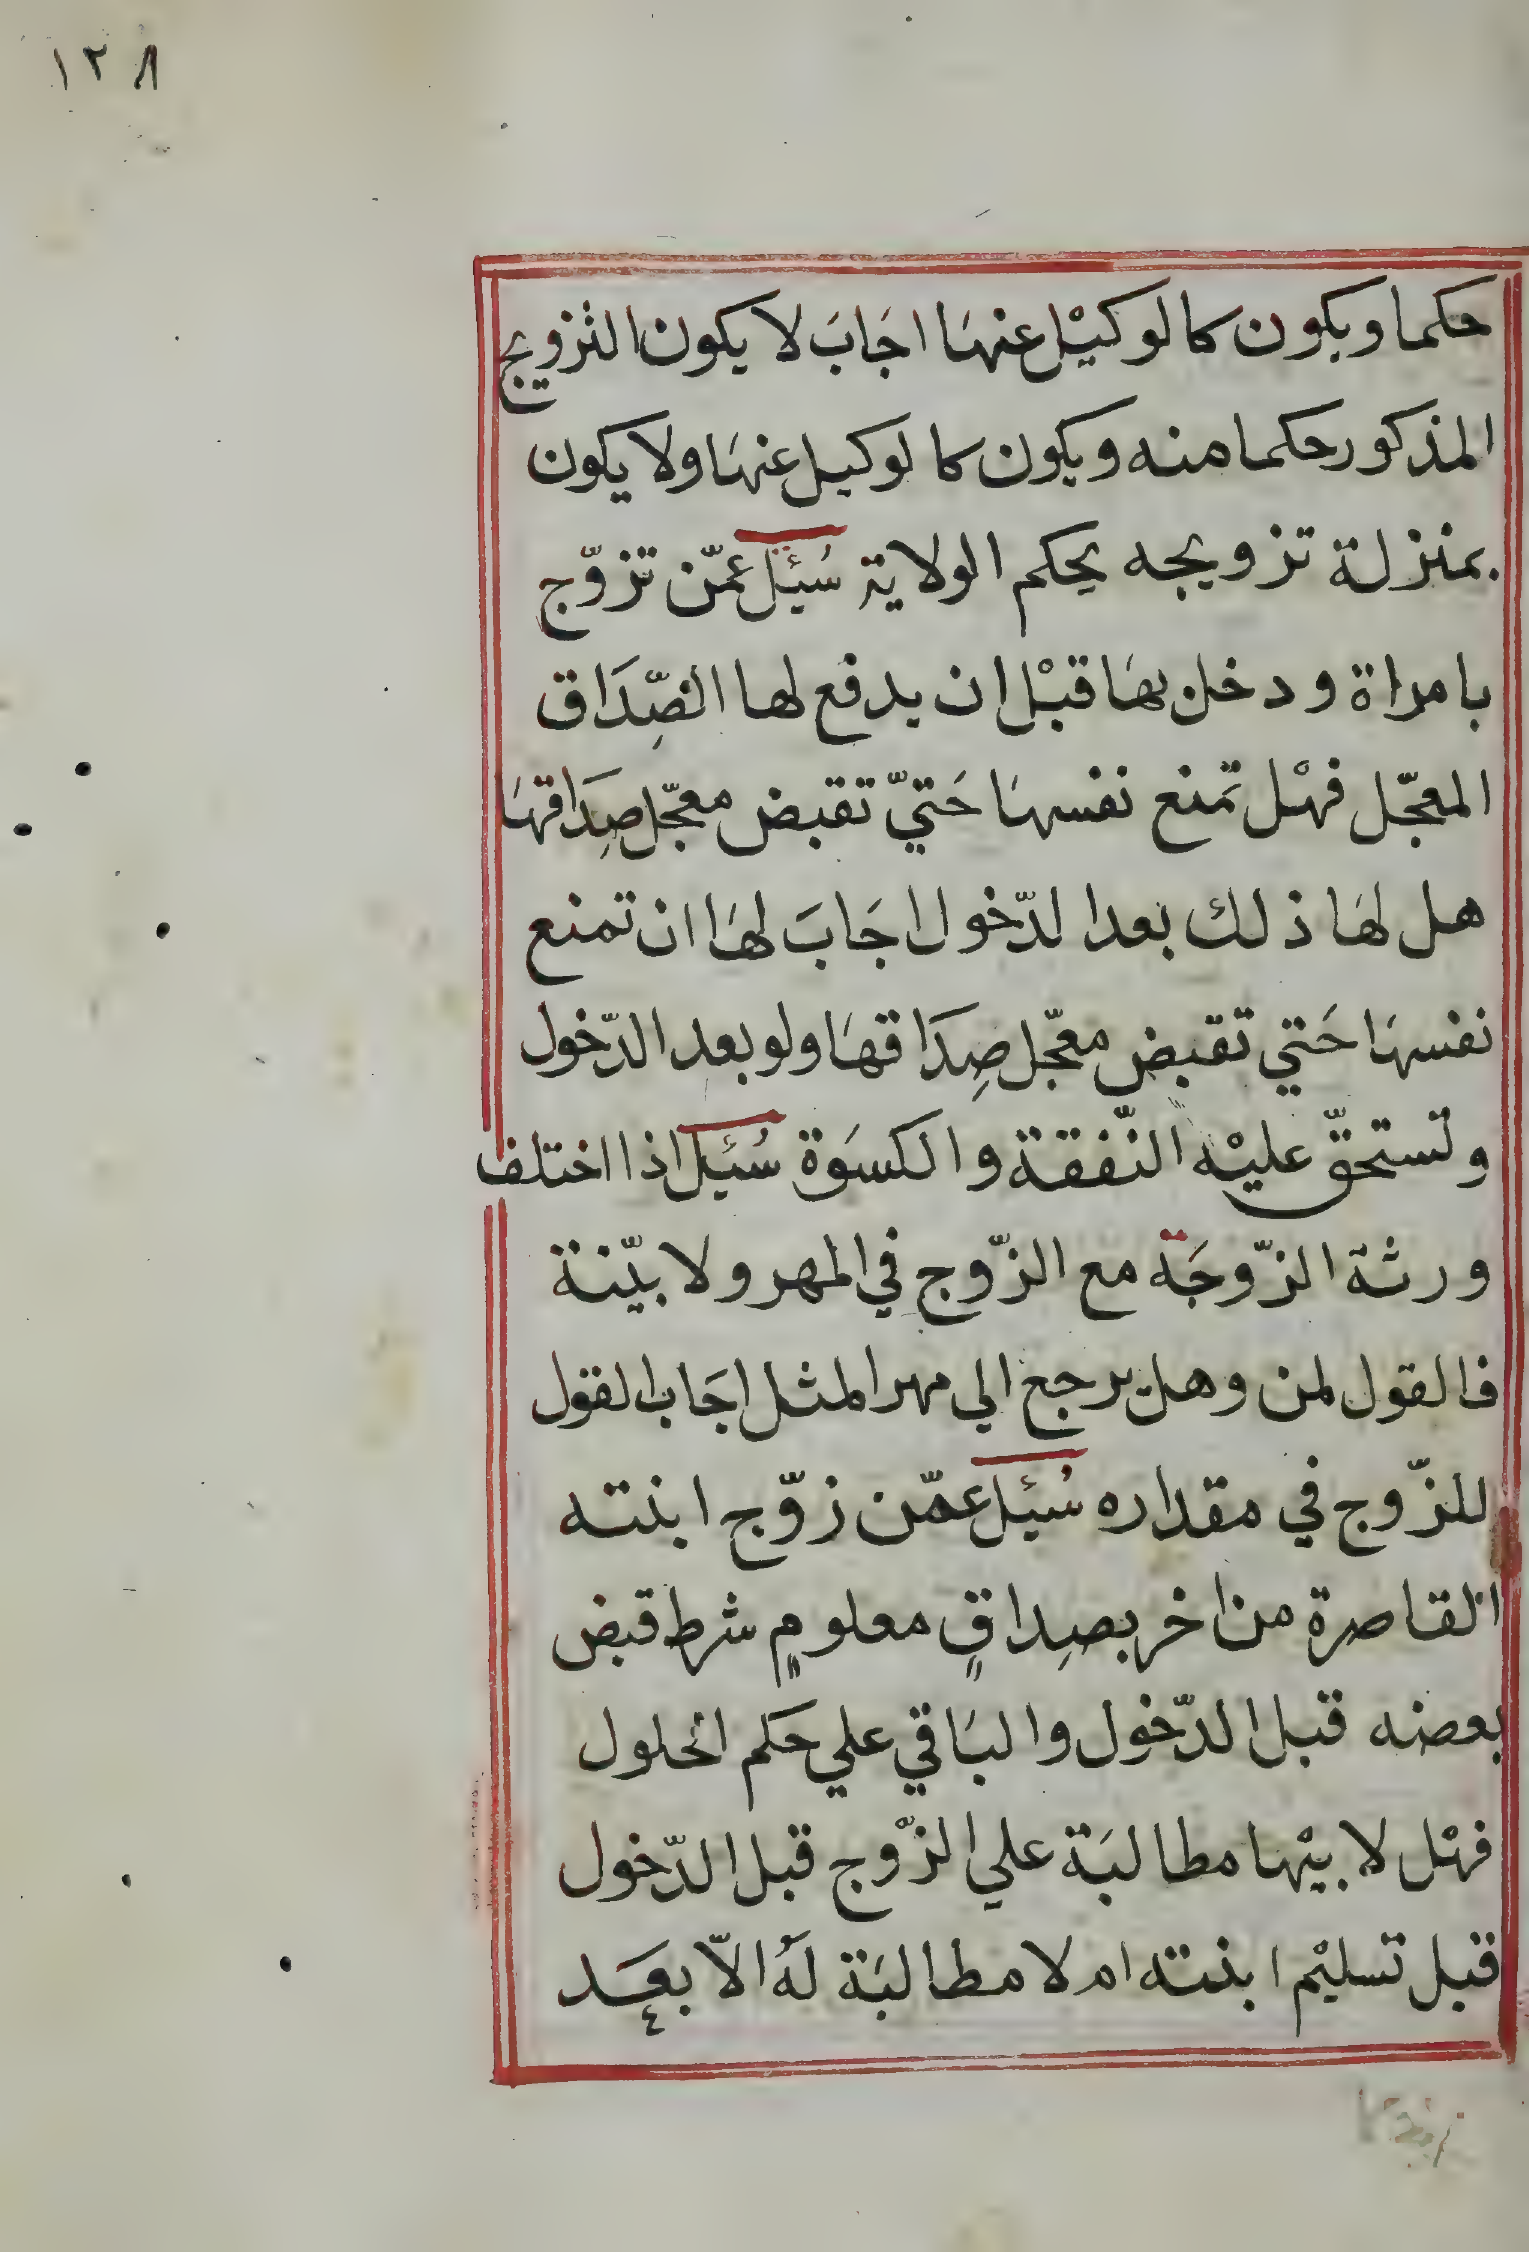 ١٢٨
حكما ويكون كالوكيْل عنهَا اجَابَ لا يكون التزويج
المذكور حكما منه ويكون كالوكيل عنهَا ولا يكون
بمنزلة تزويجه بحكم الولاية سُئِل عمّن تزوّج
بامراة ودخل بهَا قبْل ان يدفع لها الصِّدَاق
المعجّل فهْل تمنع نفسهَا حَتيّ تقبض معجّل صِدَاقهَا
هل لهَا ذلك بعد الدّخول اجَابَ لهَا ان تمنع
نفسهَا حَتي تقبض معجّل صِدَاقهَا ولو بعد الدّخول
وتستحقّ عليْه النّفقة والكسوَة سُئِل اذا اختلف
ورثة الزّوجَة مع الزّوج في المهر ولا بيّنة
فالقول لمن وهل يرجع الي مهر المثل اجَاب القول
للزّوج في مقداره سُئِل عمّن زوّج ابنته
القاصرة من اخر بصِداقٍ معلومٍ شرط قبض
بعضه قبل الدّخول والبَاقي علي حَكم الحلول
فهْل لابيْها مطالبَة علي الزّوج قبل الدّخول
قبل تسليْم ابنته ام لا مطالبَة لهُ الاّ بعَد